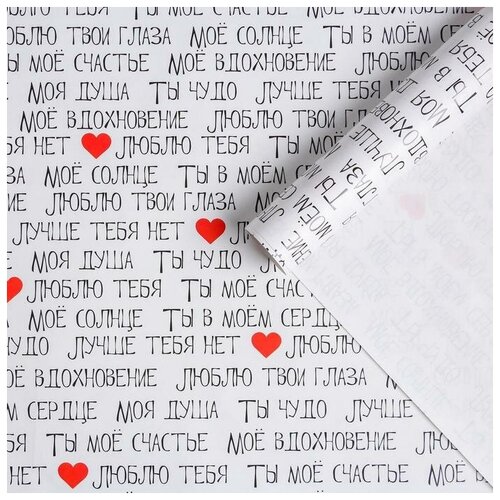 ЛЮБЛЮ ТВОИ ГЛАЗА МОЁ СОЛНЦЕ ТЫ В МОЁМ СЕРДЦЕ
ТЫ МОЁ СЧАСТЬЕ МОЁ ВДОХНОВЕНИЕ ЛЮБЛЮ
МОЯ ДУША ТЫ ЧУДО ЛУЧШЕ ТЕБЯ НЕТ
МОЁ ВДОХНОВЕНИЕ ЛЮБЛЮ ТВОИ ГЛАЗА
ТЕБЯ НЕТ ЛЮБЛЮ ТЕБЯ ТЫ МОЁ
МОЁ СОЛНЦЕ ТЫ В МОЁМ СЕРДЦЕ
ЛЮБЛЮ ТВОИ ГЛАЗА МОЁ
ЛУЧШЕ ТЕБЯ НЕТ
МОЯ ДУША ТЫ ЧУДО
ЛЮБЛЮ ТЕБЯ ТЫ МОЁ СЧАСТ
МОЁ СОЛНЦЕ ТЫ В МОЁМ СЕРДЦЕ
ЧУДО ЛУЧШЕ ТЕБЯ НЕТ ЛЮБЛЮ
МОЁ ВДОХНОВЕНИЕ ЛЮБЛЮ ТВОИ ГЛАЗА
ЁМ СЕРДЦЕ МОЯ ДУША ТЫ ЧУДО ЛУЧШЕ
ТЫ МОЁ СЧАСТЬЕ МОЁ ВДОХНОВЕНИЕ
НЕТ ЛЮБЛЮ ТЕБЯ МОЁ СОЛНЦЕ